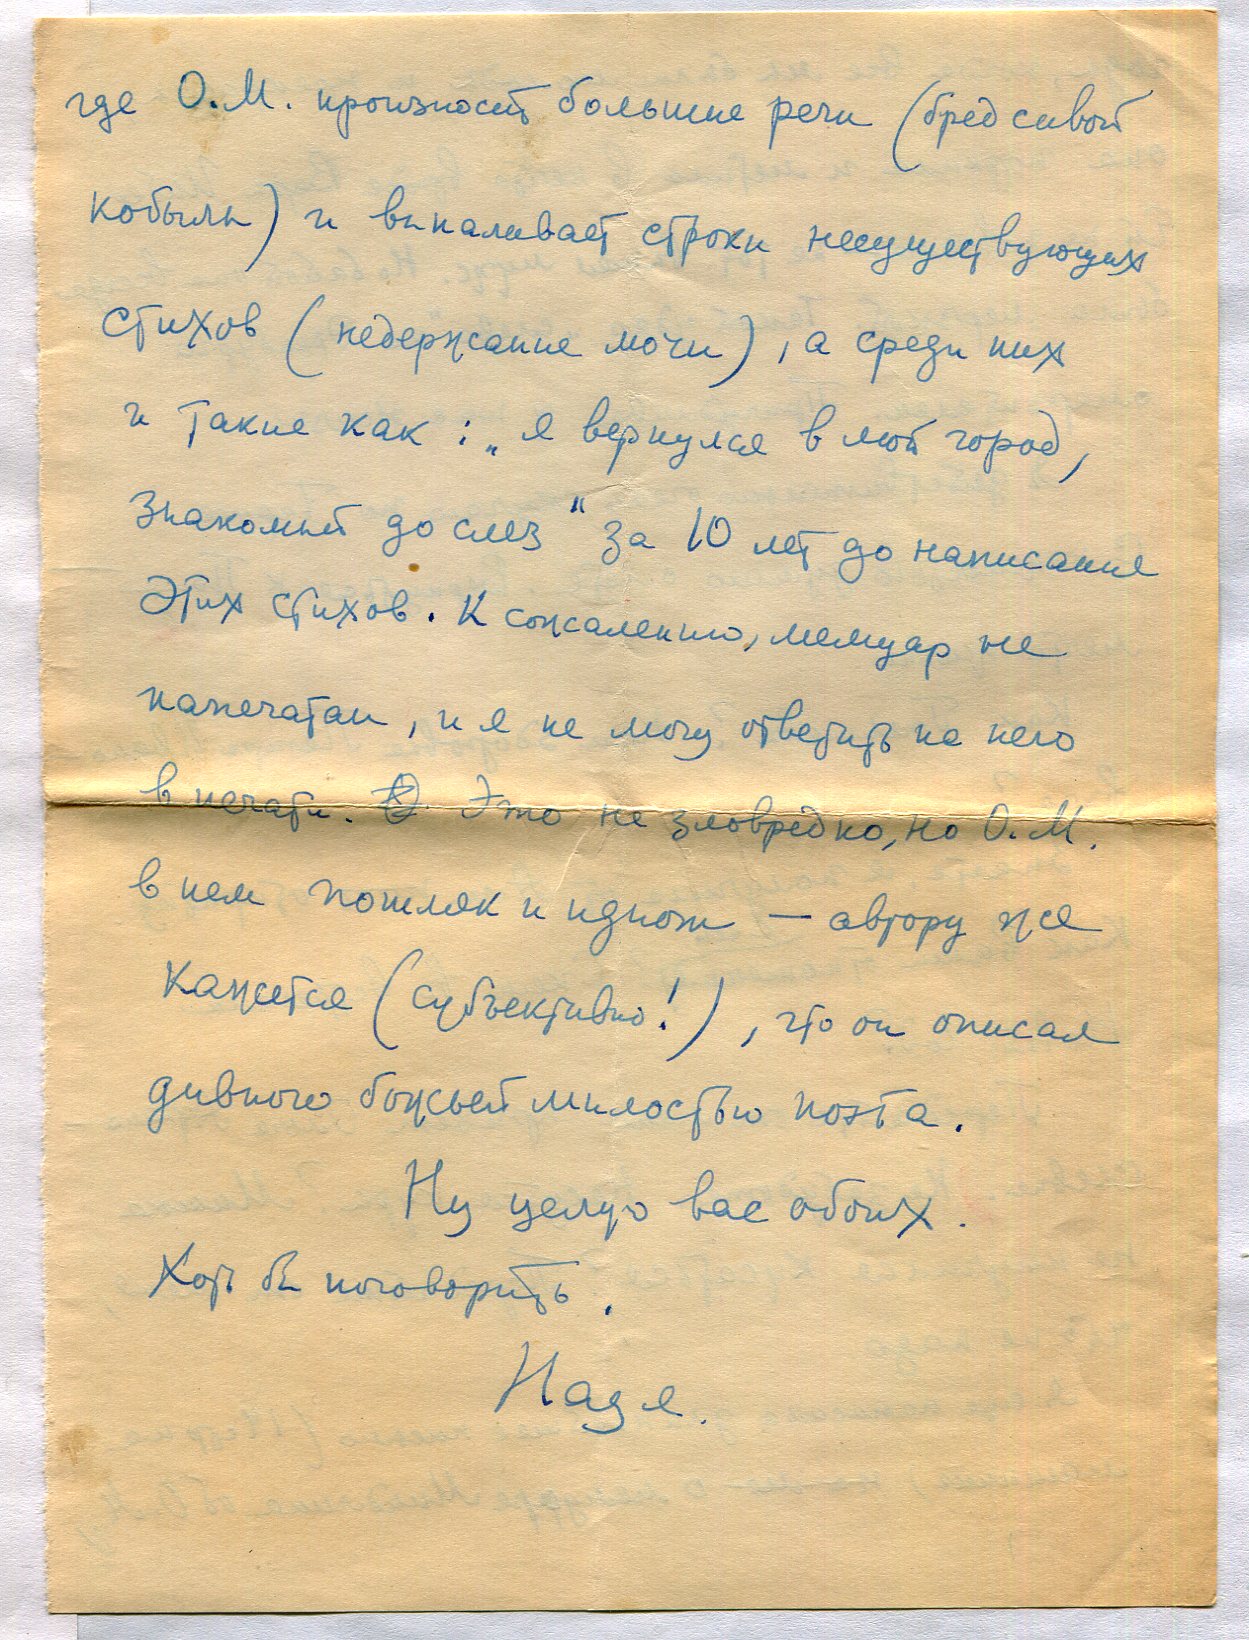 где О.М. произносит большие речи (бред сивой
кобылы) и выпаливает строки несуществующих
стихов (недержание мочи), а среди них
и такие как: „я вернулся в мой город,
знакомый до слез" за 10 лет до написания
этих стихов. К сожалению, мемуар не
напечатан, и я не могу ответить на него
в печати. Это не зловредно, но О.М.
в нем пошляк и идиот — автору же
кажется (субъективно!), что он описал
дивного божьей милостью поэта.
Ну целую вас обоих.
Хоть бы поговорить.
Надя.